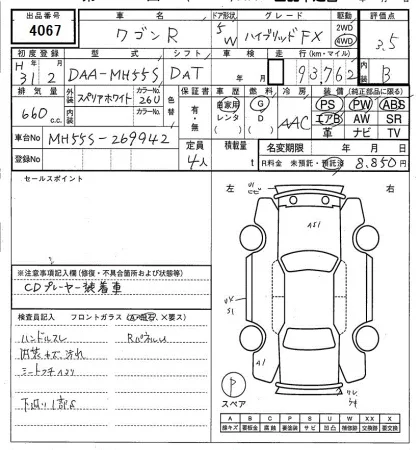 出品番号 車名 ドア形状 グレード 駆動 評価点
4067 ワゴンR 5 W ハイブリッドFX 2WD 4WD 3.5
初度登録 型式 シフト 車検 走行(km・マイル) 内装
H 31年 2月 DAA-MH55S DAT 年 月 93,762 B
排気量 外装 カラーNo. 色替 保証書 車歴 燃料 冷房 装備(純正部品に限る)
660 c.c. スペリアホワイト 26U 有・無 自家用 レンタ G D AAC PS PW ABS
内装 カラーNo. エアB AW SR
革 ナビ TV
車台No MH55S-269942 定員 積載量 名変期限 年 月 日
登録No 4人 t R料金 未預託・預託済 8,850円
セールスポイント
左 右
A51
A1
※注意事項記入欄(修復・不具合箇所および状態等)
CDプレーヤー装着車
検査員記入 フロントガラス(A・飛石、×要ス)
ハンドルスレ
内装キズ、汚れ
シートコゲ
P
スペア
A B C P S U W X XX
線キズ 要板金 腐蝕 要塗装 サビ 凹凸 補修跡 要交換 交換跡